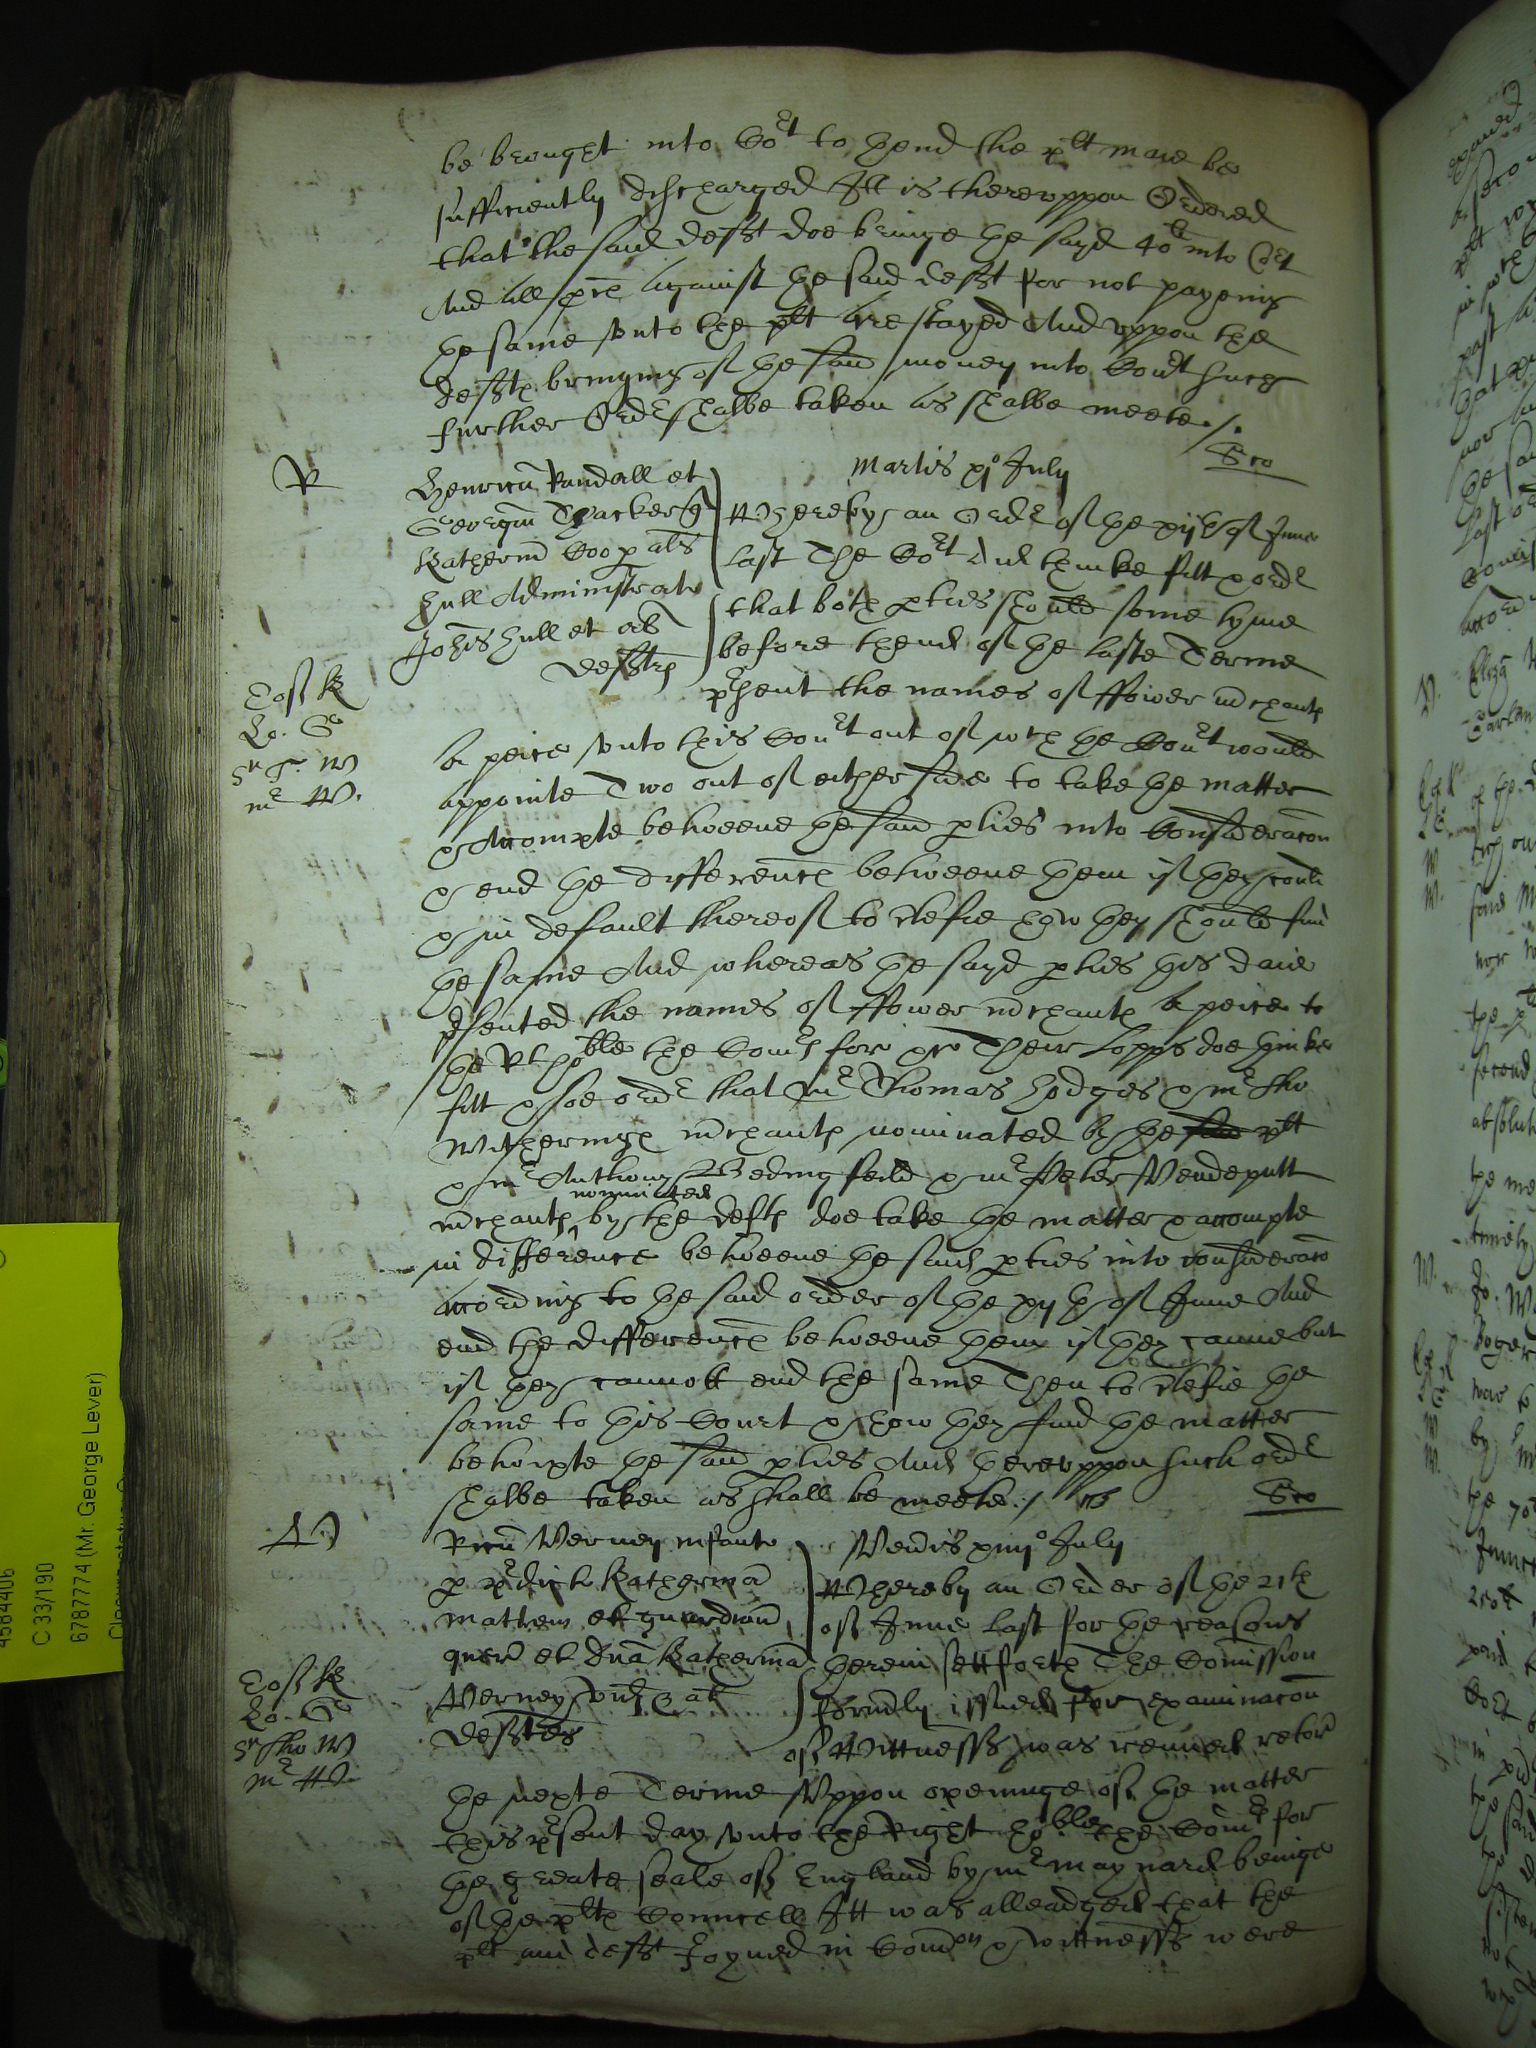 be brought into Cort to thend the plt maie be
sufficiently discharged Itt is thereuppon Ordered
that the said deft doe bringe the sayd 40li into Cort
And all pces against the said deft for not payeing
the same unto the plt are stayed And uppon the
defts bringing of the said money into Court such
further Order shalbe taken as shalbe meete./.
R
Martis xjo July
Henricu Randall et
Georgiu Thacker
Katherin Coop als
Hull Administrat
Johis Hull et al
Defts
Whereby an Order of the xijth of June
last The Cort did thinke fitt & order
that both pties should some tyme
before thend of the laste Terme
psent the names of ffower mchants
a peice unto this Court out of wch the Court would
appointe Two out of either side to take the matter
& Accompte betweene the said pties into Consideracon
& end the difference betweene them if they could
& in default thereof to Certefie how they should find
the same And whereas the sayd pties this daie
psented the names of ffower mchants a peice to
the Rt hoble the Coms for &c Their Lopps doe thinke
fitt & soe order that Mr Thomas Hodges & mr Tho
Witherings mchants nominated by the said plt
& mr Anthony Bedingfeild & mr Peter Vandeputt
nominated
mchants by the defts doe take the matter & accompte
in difference betweene the said pties into consideracon
according to the said order of the xijth of June And
end the difference betweene them if they canne but
if they cannott end the same Then to Certefie the
same to this Court & how they find the matter
betwixte the said pties And thereuppon such order
shalbe taken as shall be meete ./
Ricu Verney infante
p Katherina
matrem et guardian
quer et Dna Katherina
Verney vid & al
Deftes
Veneris xiiijo July
Whereby an Order of the 21th
of June last for the reasons
therein sett forth The Comission
formerly issued for examinacon
of Wittnesses was renued retor
the nexte Terme Uppon openinge of the matter
this psent day unto the Right hoble the Comrs for
the greate seale of England by mr maynard beinge
of the plts Councell Itt was alleadged that the
plt and deft Joyned in Comon & wittnesses were
C 33/190
6787774 (Mr. George Lever)